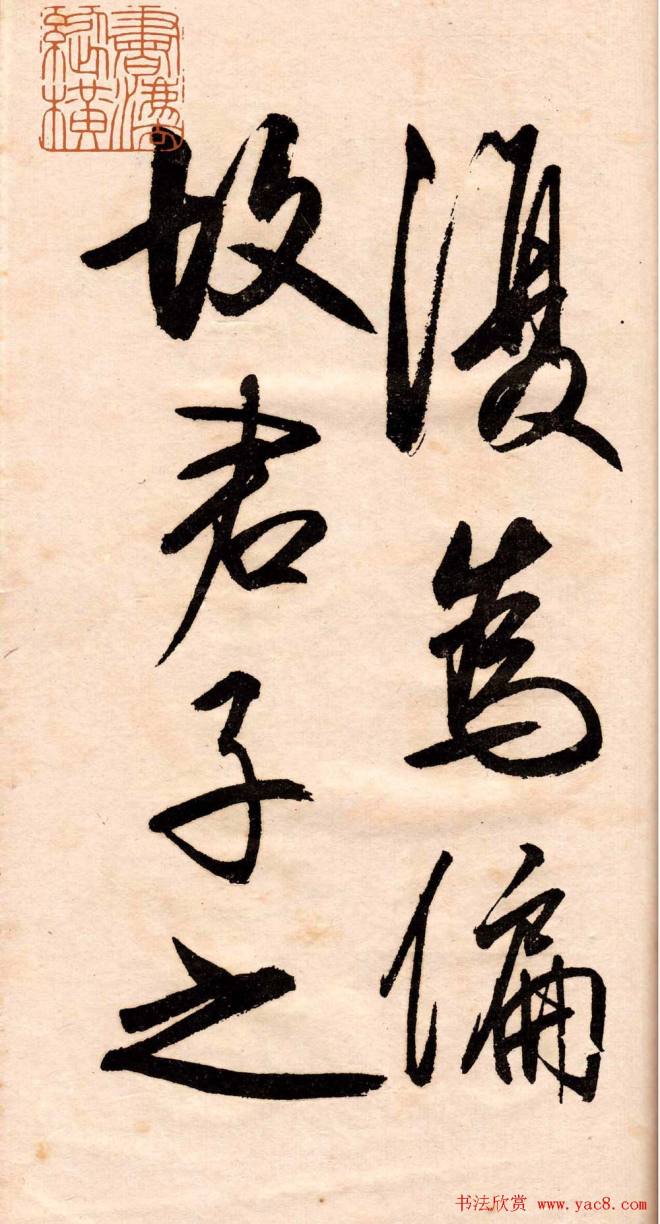 復為偏
故君子之
書法
縱橫
书法欣赏 www.yac8.com